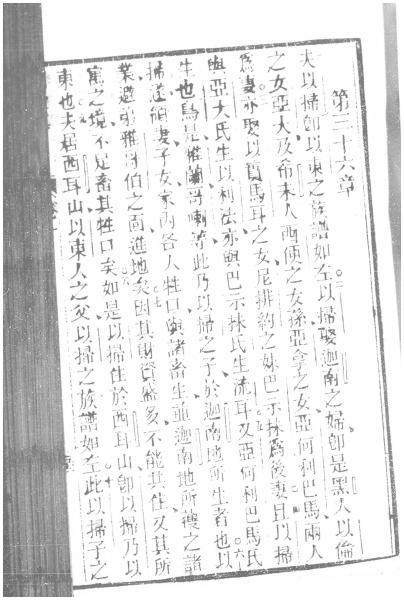 第三十六章
夫以掃卽以東之族譜如左以掃娶迦南之婦卽是黑人以倫
之女亞大及希未人西便之女孫亞拿之女亞何利巴馬兩人
爲妻亦娶以實馬耳之女尼排約之妹巴示抹爲後妻且以掃
與亞大氏生以利法亦與巴示抹氏生流耳又亞何利巴馬氏
生也烏是雅蘭哥喇等此乃以掃之子於迦南地所生者也以
掃遂領妻子女家內各人牲口與諸畜生並迦南地所獲之諸
業避弟雅各伯之面進地矣因其財資盛多不能共住又其所
寓之境不足畜其牲口矣如是以掃住於西耳山卽以掃乃以
東也夫居西耳山以東人之父以掃之族譜如左此以掃子之